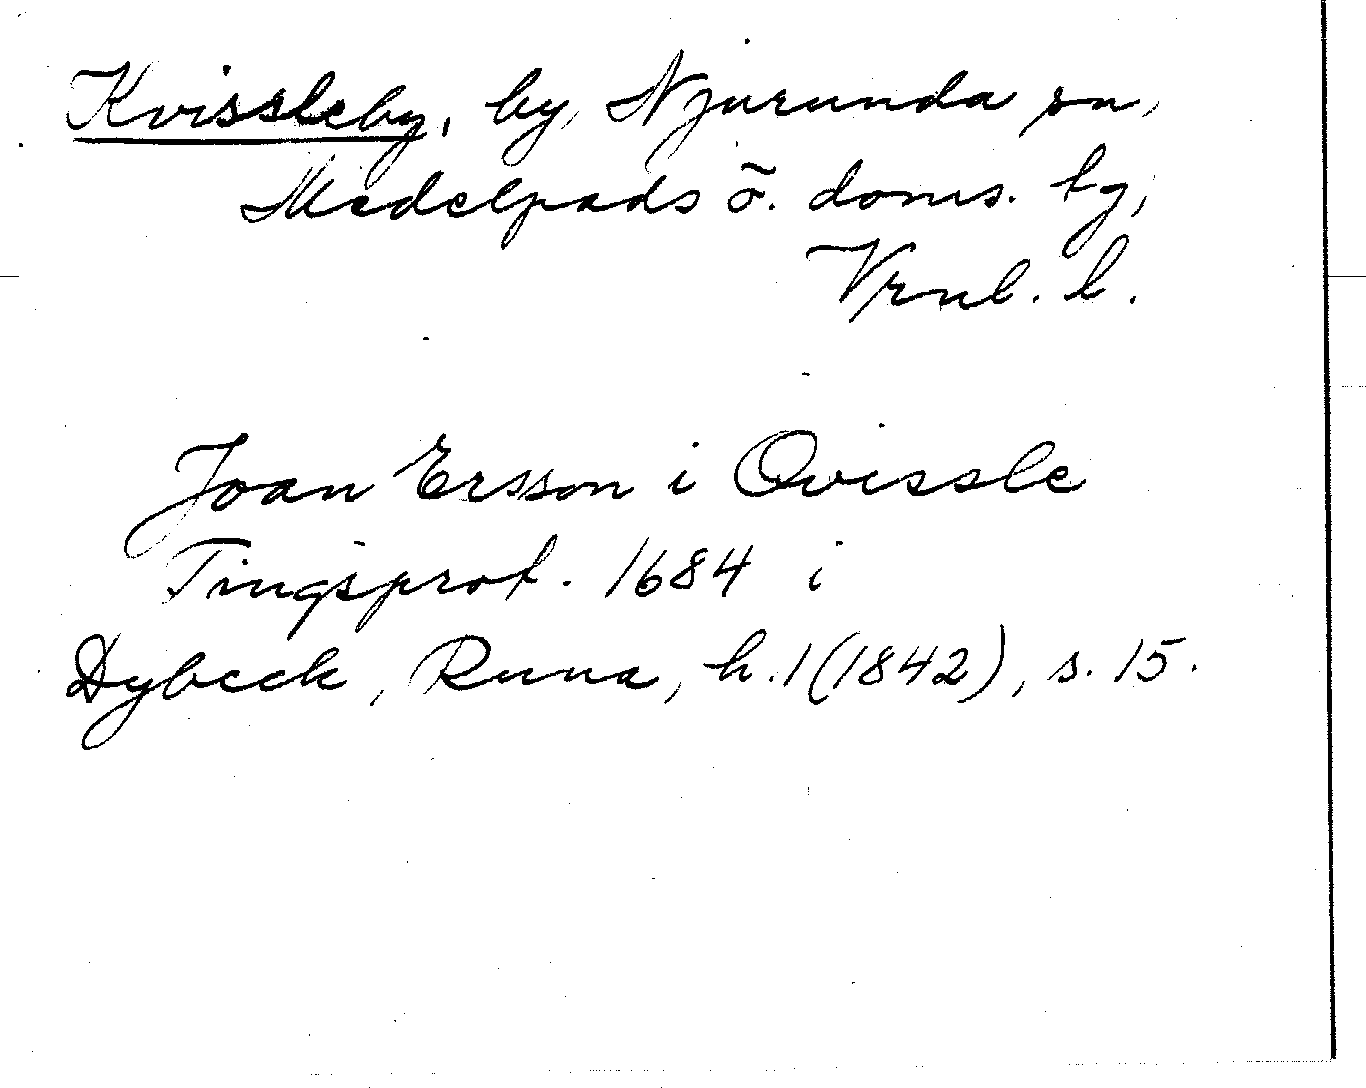 Kvissleby, by, Njurunda sn,
Medelpads ö. doms. tg,
Vrnl. l.
Joan Ersson i Qvissle
Tingsprot. 1684 i
Dybeck, Runa, h.1(1842), s. 15.